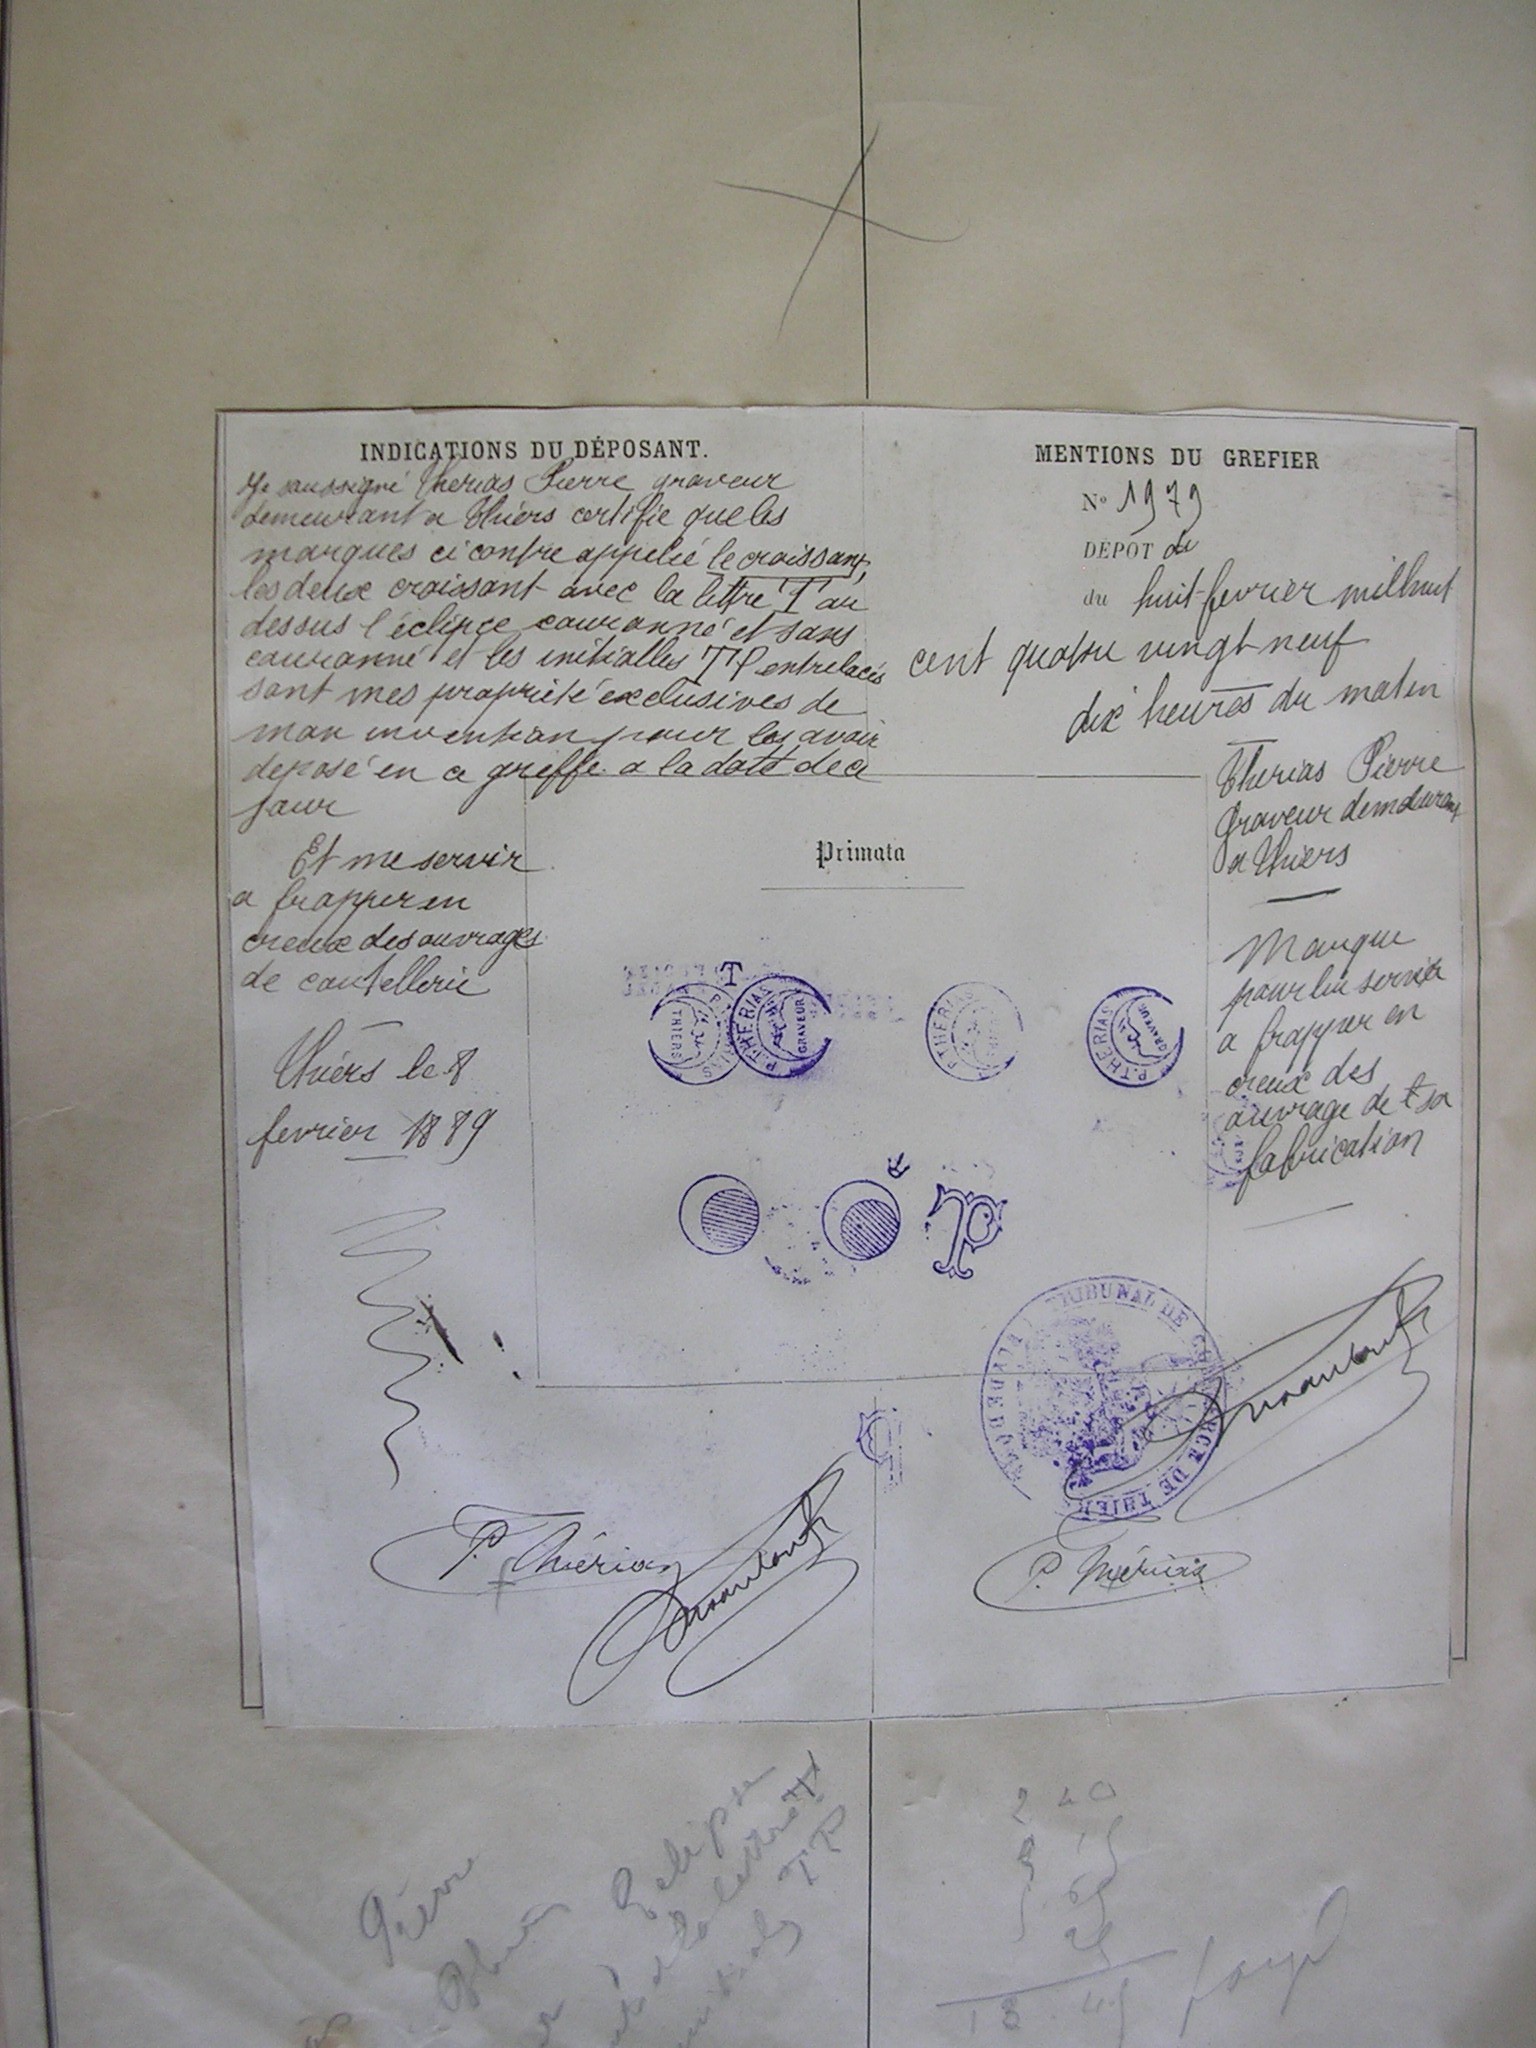 INDICATIONS DU DÉPOSANT.
Je soussigné Therias Pierre graveur
demeurant a Thiers certifie que les
marques ci contre appelié le croissant,
les deux croissant avec la lettre T au
dessus l'éclipce couronné et sans
couronné et les initialles TP entrelacés
sont mes proprieté exclusives de
mon invention pour les avoir
deposé en ce greffe a la date de ce
jour
Et me servir
a frapper en
creux des ouvrages
de coutellerie
Thiers le 8
fevrier 1889
MENTIONS DU GREFIER
No 1979
DÉPOT du
du huit fevrier mil huit
cent quatre vingt neuf
dix heures du matin
Therias Pierre
Graveur demeurant
a Thiers
Marque
pour lui servir
a frapper en
creux des
ouvrage de sa
fabrication
Primata
T
THIERS
P. THERIAS
GRAVEUR
P. THERIAS
P. THERIAS
GRAVEUR
TP
TRIBUNAL DE COMMERCE DE THIERS
P. Thérias
P. Thérias
Pierre
Eclipse
la lettre T
TP
2 40